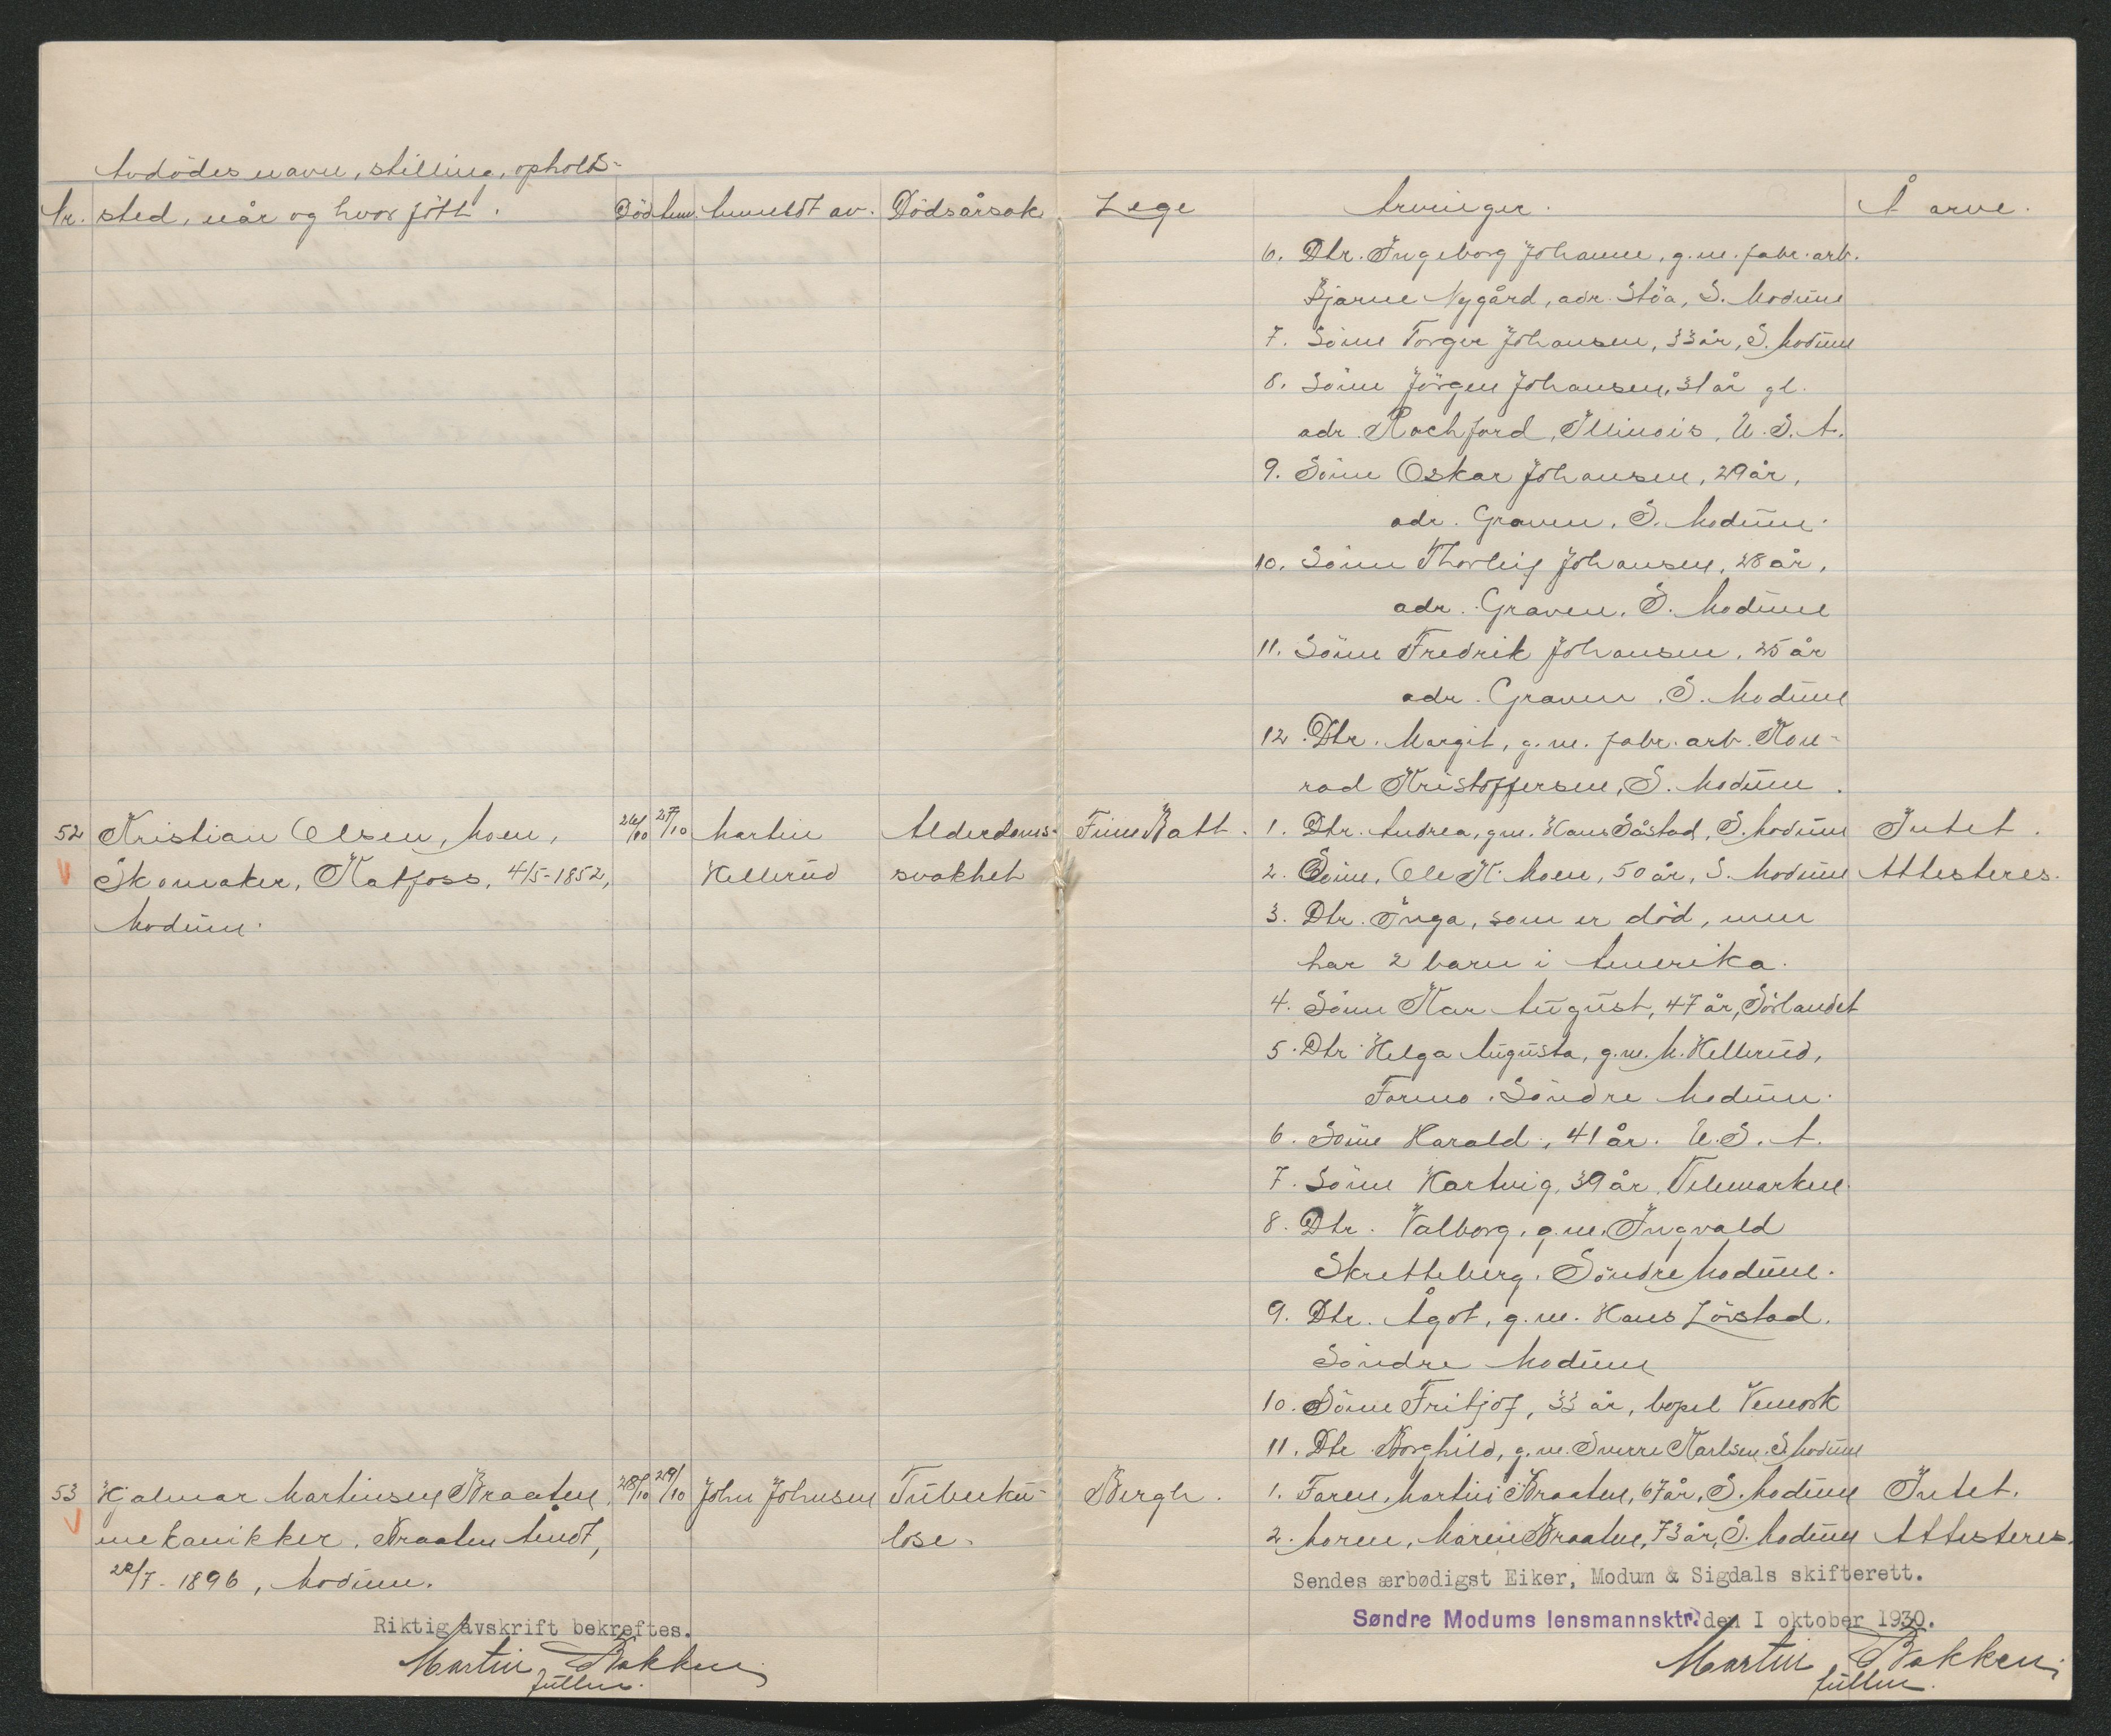 Avdödes navn, stilling, opholds-
Nr. sted, når og hvor fött. Död Anm. Anmeldt av. Dödsårsak Lege Arvinger. Å arve.
6. Dtr. Ingeborg Johanne, g.m. fabr. arb.
Bjarne Nygård, adr. Stöa, S. Modum
7. Sönn Torger Johansen, 33 år, S. Modum
8. Sönn Jörgen Johansen, 31 år gl.
adr. Rochford, Illinois, U.S.A.
9. Sönn Oskar Johansen, 29 år,
adr. Graven, S. Modum.
10. Sönn Thorleif Johansen, 28 år,
adr. Graven, S. Modum
11. Sönn Fredrik Johansen, 25 år
adr. Graven, S. Modum
12. Dtr. Margit, g.m. fabr. arb. Kon-
rad Kristoffersen, S. Modum.
52 Kristian Olsen, Moen, 26/10 27/10 Martin Alderdoms- Finn Batt. 1. Dtr. Andrea, g.m. Hans Såstad, S. Modum Intet.
Skomaker, Katfoss, 4/5-1852, Hellerud svakhet 2. Sönn, Ole K. Moen, 50 år, S. Modum Attesteres.
Modum. 3. Dtr. Inga, som er död, men
har 2 barn i Amerika.
4. Sönn Kar August, 47 år, Sörlandet
5. Dtr. Helga Augusta, g.m. M. Hellerud,
Formo. Söndre Modum.
6. Sönn Harald, 41 år. U.S.A.
7. Sönn Hartvig, 39 år, Telemarken.
8. Dtr. Valborg, g.m. Ingvald
Skretteberg. Söndre Modum.
9. Dtr. Ågot, g.m. Hans Lövstad.
Söndre Modum
10. Sönn Fritjof, 33 år, bopel Vemork
11. Dtr Borghild, g.m. Sverre Karlsen S. Modum
53 Hjalmar Martinsen Braaten, 28/10 29/10 John Johnsen Tuberku- Bergh. 1. Faren, Martin Braaten, 67 år, S. Modum Intet.
mekanikker, Braaten Åmot, lose. 2. Moren, Maren Braaten, 73 år, S. Modum Attesteres.
22/7-1896, Modum. Sendes ærbødigst Eiker, Modum & Sigdals skifterett.
Riktig avskrift bekreftes. Søndre Modums lensmannsktr. den I oktober 1930.
Martin Bakken Martin Bakken
fullm. fullm.